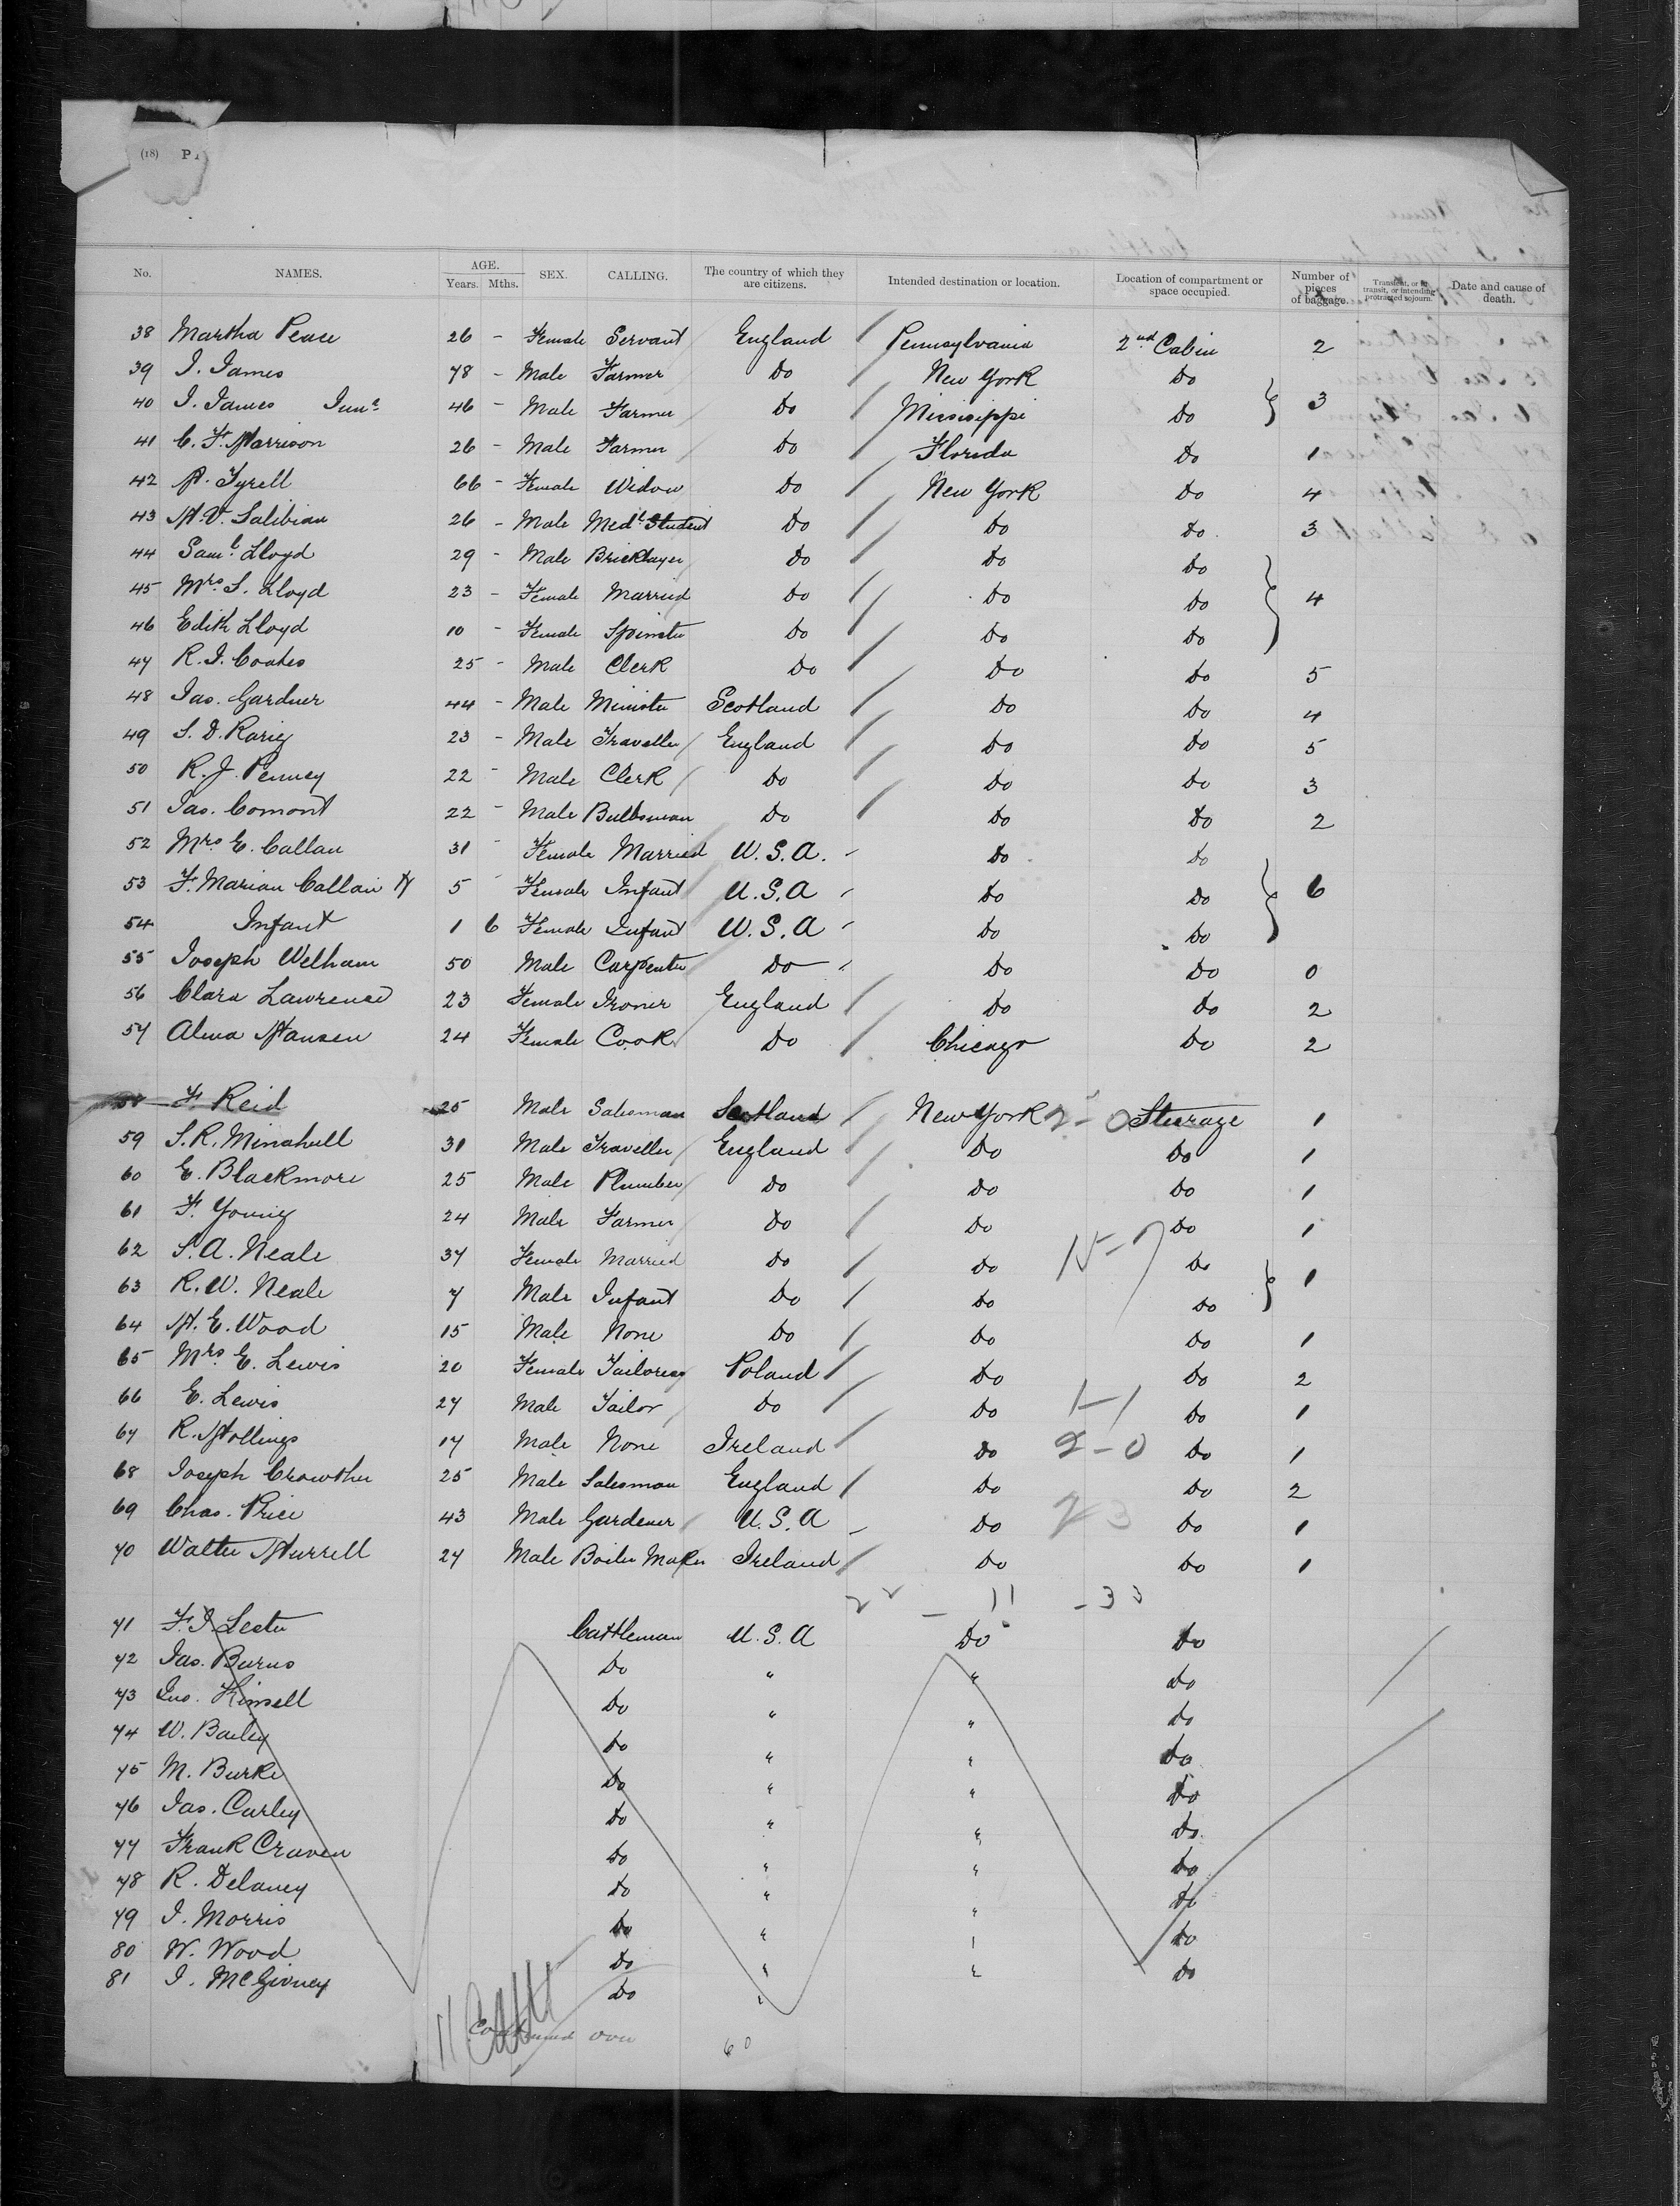 (18) P
No. NAMES. AGE. Years. Mths. SEX. CALLING. The country of which they are citizens. Intended destination or location. Location of compartment or space occupied. Number of pieces of baggage. Transient, or in transit, or intending protracted sojourn. Date and cause of death.
38 Martha Peace 26 - Female Servant England Pennsylvania 2nd Cabin 2
39 J. James 78 - Male Farmer Do New York Do
40 J. James Junr. 46 - Male Farmer Do Mississippi Do 3
41 C. F. Harrison 26 - Male Farmer Do Florida Do 1
42 A. Tyrell 66 - Female Widow Do New York Do 4
43 H. V. Salibian 26 - Male Medl. Student Do Do Do 3
44 Saml. Lloyd 29 - Male Bricklayer Do Do Do
45 Mrs. S. Lloyd 23 - Female Married Do Do Do 4
46 Edith Lloyd 10 - Female Spinster Do Do Do
47 R. J. Coates 25 - Male Clerk Do Do Do 5
48 Jas. Gardner 44 - Male Minister Scotland Do Do 4
49 S. D. Rarig 23 - Male Traveller England Do Do 5
50 R. J. Penney 22 - Male Clerk Do Do Do 3
51 Jas. Comont 22 - Male Bulbsman Do Do Do 2
52 Mrs. E. Callan 31 - Female Married U.S.A. Do Do
53 F. Marian Callan 5 Female Infant U.S.A Do Do 6
54 Infant 1 6 Female Infant U.S.A Do Do
55 Joseph Welham 50 Male Carpenter Do Do Do 0
56 Clara Lawrence 23 Female Ironer England Do Do 2
57 Alma Hansen 24 Female Cook Do Chicago Do 2
58 F. Reid 25 Male Salesman Scotland New York 2-0 Steerage 1
59 S. R. Minahull 31 Male Traveller England Do Do 1
60 E. Blackmore 25 Male Plumber Do Do Do 1
61 F. Young 24 Male Farmer Do Do Do 1
62 S. A. Neale 37 Female Married Do Do 15-7 Do
63 R. W. Neale 7 Male Infant Do Do Do 1
64 H. E. Wood 15 Male None Do Do Do 1
65 Mrs. E. Lewis 20 Female Tailoress Poland Do Do 2
66 E. Lewis 27 Male Tailor Do Do 1-1 Do 1
67 R. Hollings 17 Male None Ireland Do 2-0 Do 1
68 Joseph Crowther 25 Male Salesman England Do Do 2
69 Chas. Price 43 Male Gardener U.S.A Do 2 3 Do 1
70 Walter Hurrell 27 Male Boiler Maker Ireland Do Do 1
22 - 11 - 33
71 F. J. Lester Cattleman U.S.A Do Do
72 Jas. Burns Do " " Do
73 Jno. Kinsell Do " " Do
74 W. Bailey Do " " Do
75 M. Burke Do " " Do
76 Jas. Curley Do " " Do
77 Frank Craven Do " " Do
78 R. Delaney Do " " Do
79 J. Morris Do " " Do
80 W. Wood Do " " Do
81 J. McGivney Do "
11 Cattl
Continued over 60